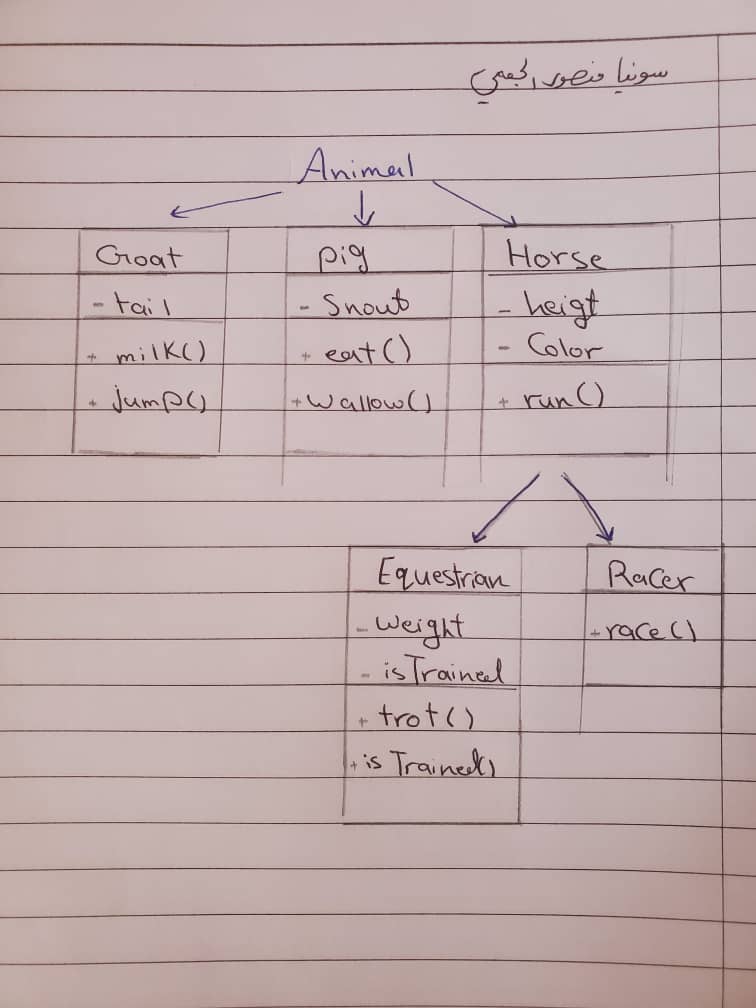 سونيا منصور الجعبي
Animal
Goat
- tail
+ milk()
+ jump()
pig
- Snout
+ eat()
+ wallow()
Horse
- heigt
- Color
+ run()
Equestrian
- weight
- isTrained
+ trot()
+ is Trained()
Racer
+ race()